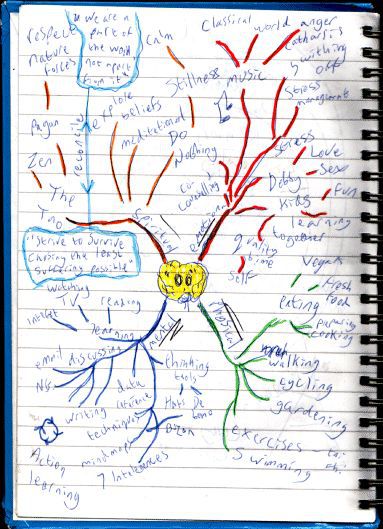 "we are a
part of
the world
not apart
from it"
respect
nature
forces
Pagan
Zen
The
Tao
reconcile
explore
beliefs
meditational
Calm
Stillness
Do
Nothing
Spiritual
"Strive to survive
causing the least
suffering possible"
Classical
music
world
anger
catharsis
writhing
off
Stress
management
Stress
Love
Sex
Fun
Kids
learning
together
quality
time
Self
emotional
mental
watching
TV
reading
Internet
learning
email
discussing
NGs
writing
data
techniques
mindmaps
7 Intelligences
Action
learning
thinking
tools
Hats
De
Bono
Buzan
Physical
Vegan
Fresh
food
eating
preparing
cooking
walking
cycling
gardening
exercises
tai
chi
Swimming